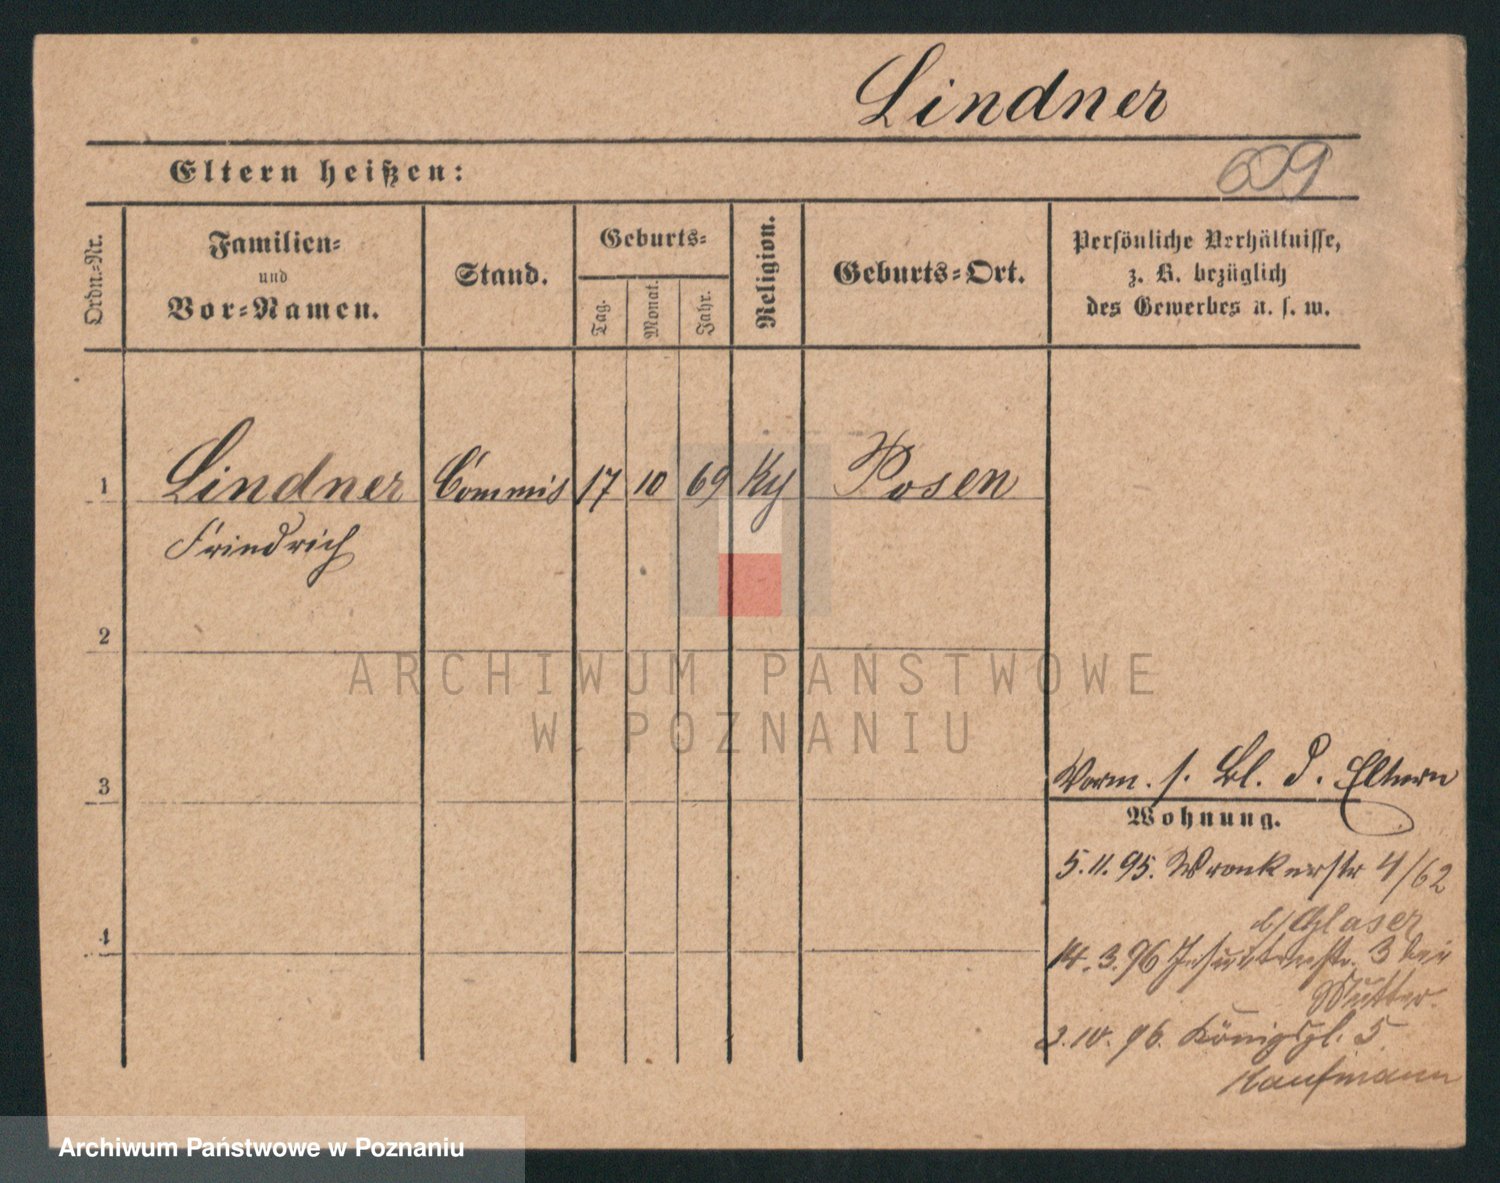 Lindner
Eltern heißen:
609
Ordn.-Nr.
Familien-
und
Vor-Namen.
Stand.
Geburts-
Tag.
Monat.
Jahr.
Religion.
Geburts-Ort.
Persönliche Verhältnisse,
z. B. bezüglich
des Gewerbes u. s. w.
1 Lindner Commis 17 10 69 Posen
Friedrich
2
3
4
Vorm. s. Bl. d. Eltern
Wohnung.
5.11.95. Wronkerstr 4/62
b/Glaser
14.3.96 3 bei
Mutter.
3.10.96. Königspl. 5
Kaufmann
ARCHIWUM PAŃSTWOWE
W POZNANIU
Archiwum Państwowe w Poznaniu